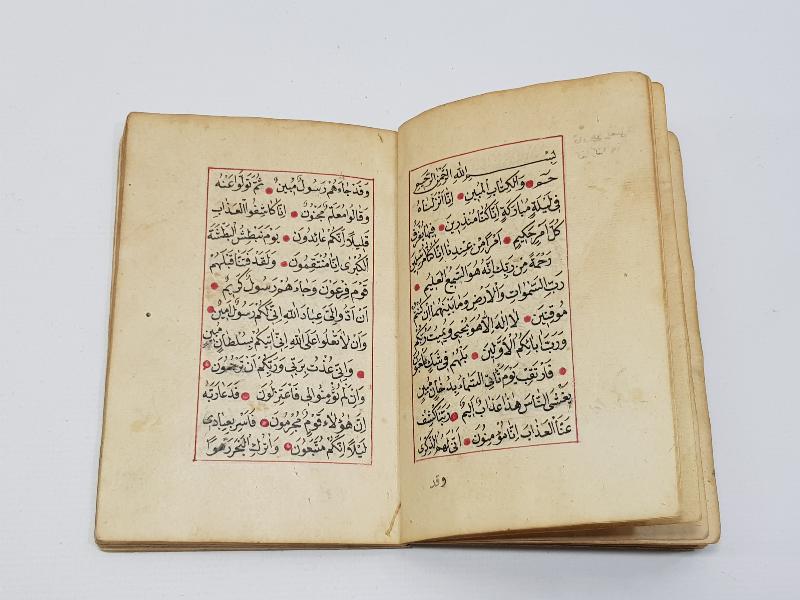 بِسْمِ اللهِ الرَّحْمٰنِ الرَّحِيمِ
حٰمٓ وَالْكِتَابِ الْمُبِينِ اِنَّا اَنْزَلْنَاهُ
فِى لَيْلَةٍ مُبَارَكَةٍ اِنَّا كُنَّا مُنْذِرِينَ فِيهَا يُفْرَقُ
كُلُّ اَمْرٍ حَكِيمٍ اَمْرًا مِنْ عِنْدِنَا اِنَّا كُنَّا مُرْسِلِينَ
رَحْمَةً مِنْ رَبِّكَ اِنَّهُ هُوَ السَّمِيعُ الْعَلِيمُ
رَبِّ السَّمٰوَاتِ وَالْاَرْضِ وَمَا بَيْنَهُمَا اِنْ كُنْتُمْ
مُوقِنِينَ لَا اِلٰهَ اِلَّا هُوَ يُحْيِى وَيُمِيتُ رَبُّكُمْ
وَرَبُّ اٰبَائِكُمُ الْاَوَّلِينَ بَلْ هُمْ فِى شَكٍّ يَلْعَبُونَ
فَارْتَقِبْ يَوْمَ تَأْتِى السَّمَاءُ بِدُخَانٍ مُبِينٍ
يَغْشَى النَّاسَ هٰذَا عَذَابٌ اَلِيمٌ رَبَّنَا اكْشِفْ
عَنَّا الْعَذَابَ اِنَّا مُؤْمِنُونَ اَنّٰى لَهُمُ الذِّكْرٰى
وقد
وَقَدْ جَاءَهُمْ رَسُولٌ مُبِينٌ ثُمَّ تَوَلَّوْا عَنْهُ
وَقَالُوا مُعَلَّمٌ مَجْنُونٌ اِنَّا كَاشِفُوا الْعَذَابِ
قَلِيلًا اِنَّكُمْ عَائِدُونَ يَوْمَ نَبْطِشُ الْبَطْشَةَ
الْكُبْرٰى اِنَّا مُنْتَقِمُونَ وَلَقَدْ فَتَنَّا قَبْلَهُمْ
قَوْمَ فِرْعَوْنَ وَجَاءَهُمْ رَسُولٌ كَرِيمٌ
اَنْ اَدُّوا اِلَىَّ عِبَادَ اللهِ اِنِّى لَكُمْ رَسُولٌ اَمِينٌ
وَاَنْ لَا تَعْلُوا عَلَى اللهِ اِنِّى اٰتِيكُمْ بِسُلْطَانٍ مُبِينٍ
وَاِنِّى عُذْتُ بِرَبِّى وَرَبِّكُمْ اَنْ تَرْجُمُونِ
وَاِنْ لَمْ تُؤْمِنُوا لِى فَاعْتَزِلُونِ فَدَعَا رَبَّهُ
اَنَّ هٰؤُلَاءِ قَوْمٌ مُجْرِمُونَ فَاَسْرِ بِعِبَادِى
لَيْلًا اِنَّكُمْ مُتَّبَعُونَ وَاتْرُكِ الْبَحْرَ رَهْوًا